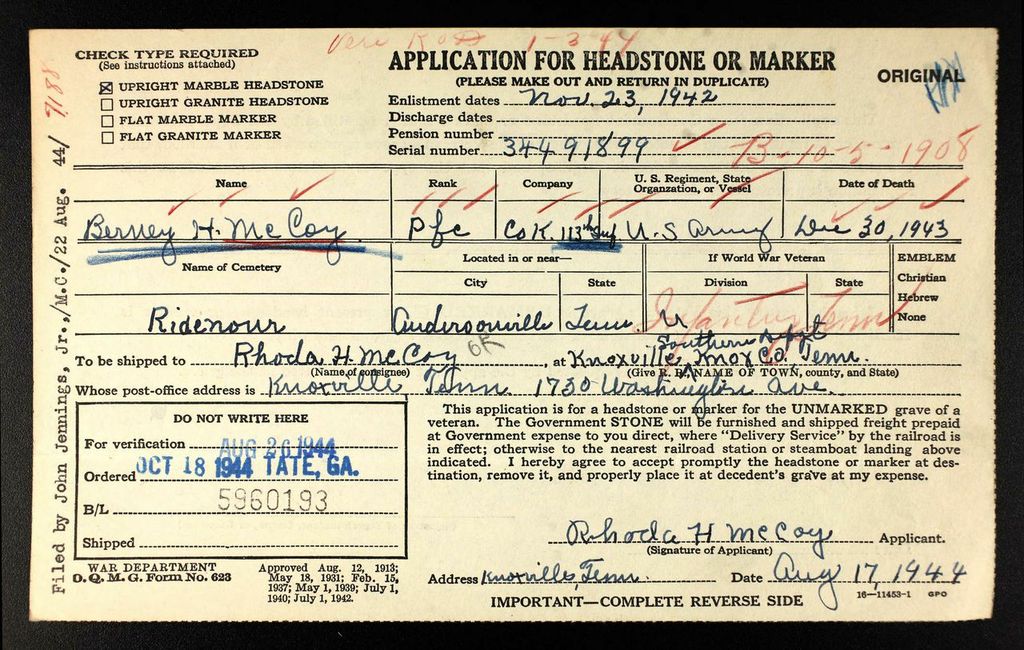 CHECK TYPE REQUIRED
(See instructions attached)
☒ UPRIGHT MARBLE HEADSTONE
☐ UPRIGHT GRANITE HEADSTONE
☐ FLAT MARBLE MARKER
☐ FLAT GRANITE MARKER
1-3-44
APPLICATION FOR HEADSTONE OR MARKER
(PLEASE MAKE OUT AND RETURN IN DUPLICATE)
ORIGINAL
Enlistment dates Nov. 23, 1942
Discharge dates
Pension number
Serial number 34491899
B-10-5-1908
Name Rank Company U. S. Regiment, State Organzation, or Vessel Date of Death
Berney H. McCoy Pfc Co K. 113th Inf U.S Army Dec 30, 1943
Name of Cemetery Located in or near— If World War Veteran EMBLEM
City State Division State Christian
Hebrew
None
Ridenour Andersonville Tenn. Infantry Tenn
Southern
To be shipped to Rhoda H. McCoy, at Knoxville, Knox Co. Tenn.
(Name of consignee) (Give R. R. NAME OF TOWN, county, and State)
Whose post-office address is Knoxville, Tenn. 1730 Washington Ave.
DO NOT WRITE HERE
For verification AUG 26 1944
Ordered OCT 18 1944 TATE, GA.
B/L 5960193
Shipped
This application is for a headstone or marker for the UNMARKED grave of a
veteran. The Government STONE will be furnished and shipped freight prepaid
at Government expense to you direct, where "Delivery Service" by the railroad is
in effect; otherwise to the nearest railroad station or steamboat landing above
indicated. I hereby agree to accept promptly the headstone or marker at des-
tination, remove it, and properly place it at decedent's grave at my expense.
Rhoda H McCoy Applicant.
(Signature of Applicant)
Address Knoxville, Tenn. Date Aug 17, 1944
WAR DEPARTMENT
O. Q. M. G. Form No. 623
Approved Aug. 12, 1913;
May 18, 1931; Feb. 15,
1937; May 1, 1939; July 1,
1940; July 1, 1942.
IMPORTANT—COMPLETE REVERSE SIDE
16—11453-1 GPO
Filed by John Jennings, Jr.,/M.C./22 Aug. 44/ 7188